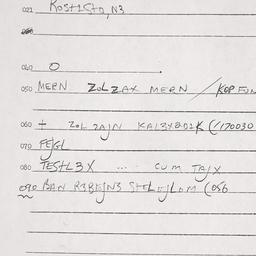 021 KOST1StD, N3
040 O
050 MERN ZOLZAX MERN / KOP FJN
060 + ZOL ZAJN KA13X8D1K (/170030
070 FEJGL
080 TESTL3X ... CUM TAJX
090 BAN R3BEJN3 StELUJLOM (056